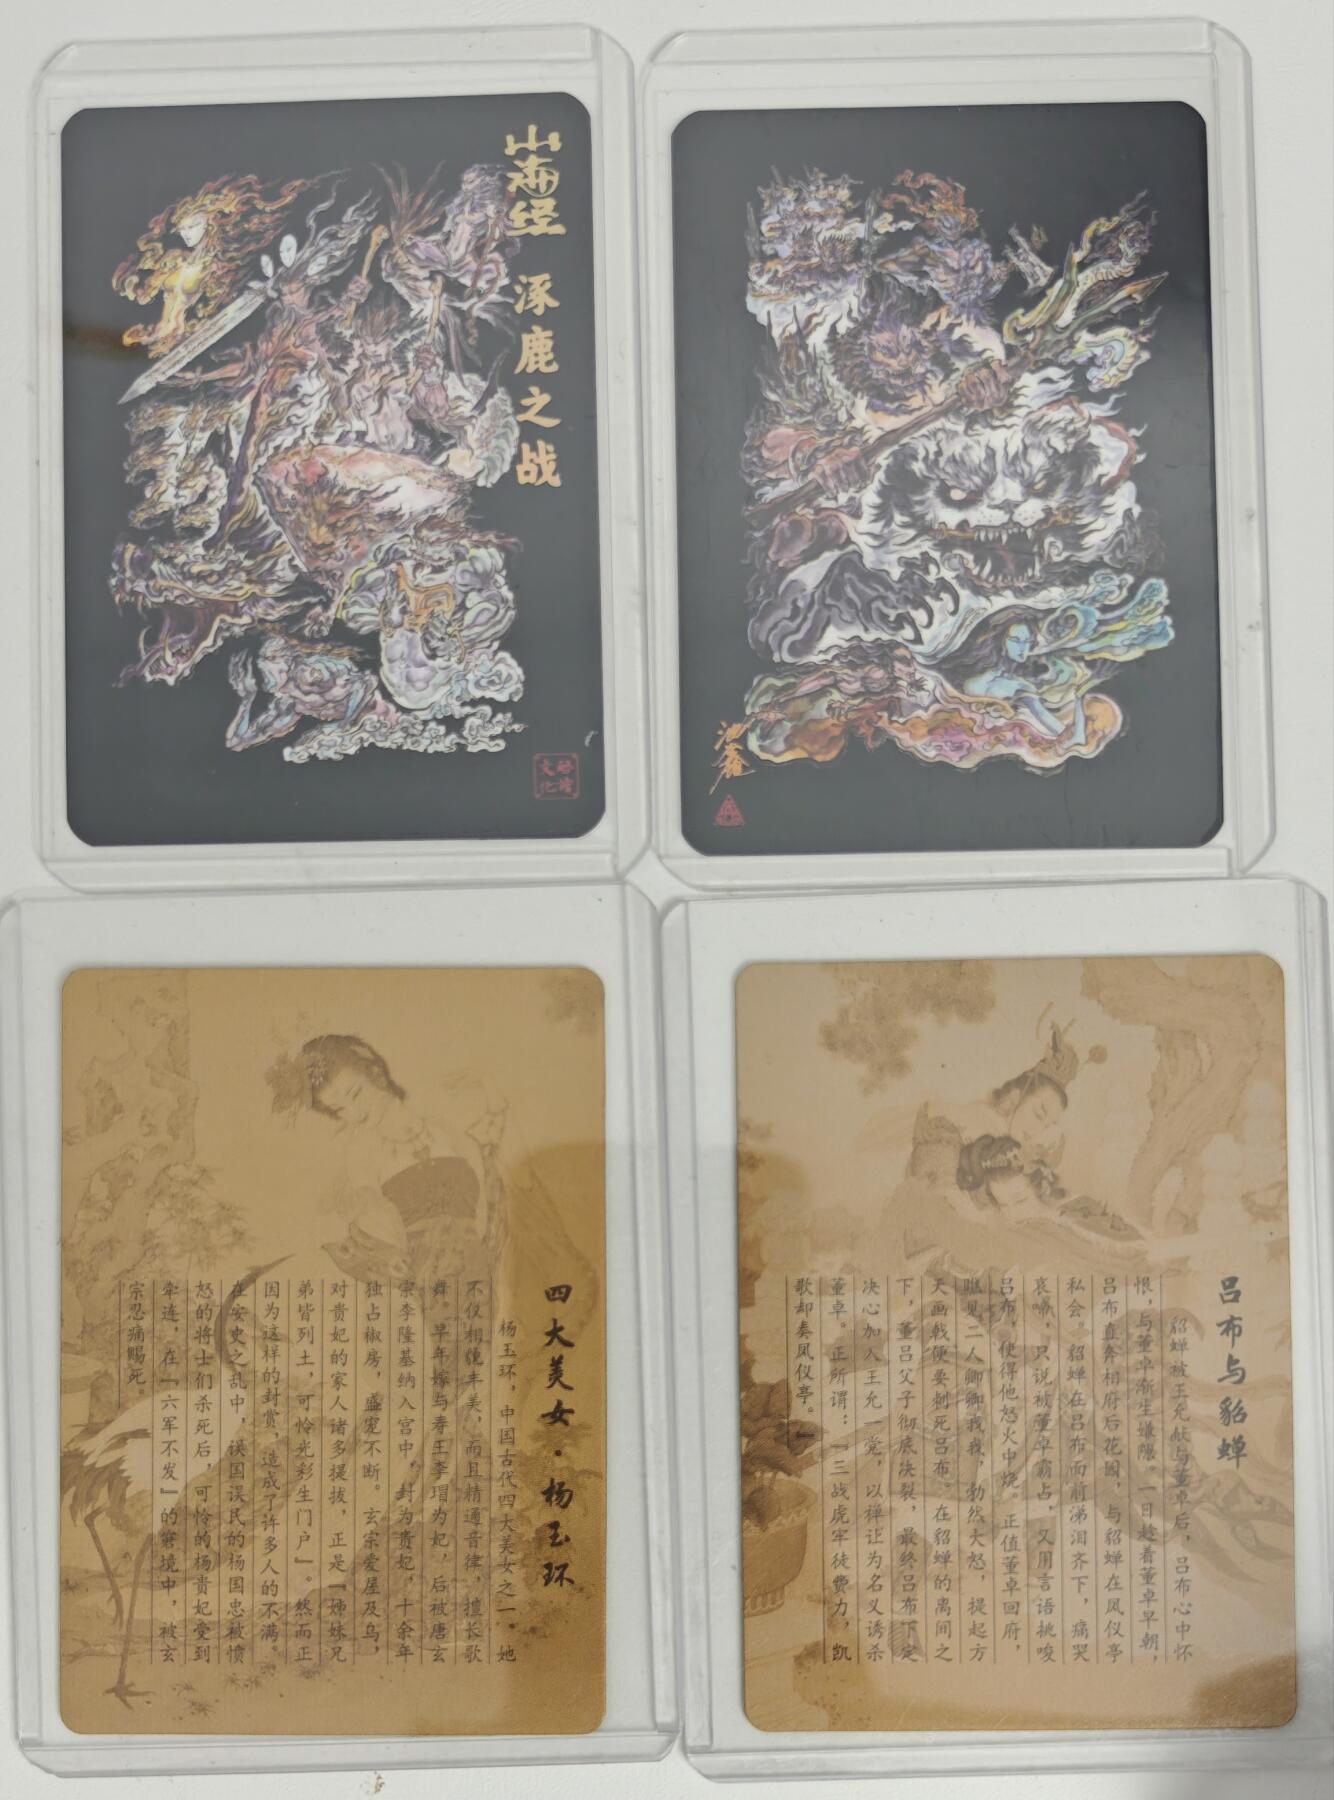 山海经
涿鹿之战
四大美女·杨玉环
杨玉环，中国古代四大美女之一。她
不仅相貌丰美，而且精通音律，擅长歌
舞。早年嫁与寿王李瑁为妃，后被唐玄
宗李隆基纳入宫中，封为贵妃，十余年
独占椒房，盛宠不断。玄宗爱屋及乌，
对贵妃的家人诸多提拔，正是『姊妹兄
弟皆列土，可怜光彩生门户』。然而正
因为这样的封赏，造成了许多人的不满。
在安史之乱中，误国误民的杨国忠被愤
怒的将士们杀死后，可怜的杨贵妃受到
牵连，在『六军不发』的窘境中，被玄
宗忍痛赐死。
吕布与貂蝉
貂蝉被王允献与董卓后，吕布心中怀
恨，与董卓渐生嫌隙。一日趁着董卓早朝，
吕布直奔相府后花园，与貂蝉在凤仪亭
私会。貂蝉在吕布面前涕泪齐下，痛哭
哀啼，只说被董卓霸占，又用言语挑唆
吕布，使得他怒火中烧。正值董卓回府，
瞧见二人卿卿我我，勃然大怒，提起方
天画戟便要刺死吕布。在貂蝉的离间之
下，董吕父子彻底决裂，最终吕布下定
决心加入王允一党，以禅让为名义诱杀
董卓。正所谓：『三战虎牢徒费力，凯
歌却奏凤仪亭。』